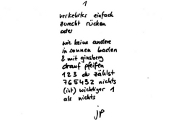 1
verkehrtes einfach
zurecht rücken
oder
wie keine andere
in sonnen baden
& mit ginsberg
drauf pfeifen
1 2 3 du zählst
7 6 5 4 3 2 nichts
(ist) wichtiger 1
als nichts
jp